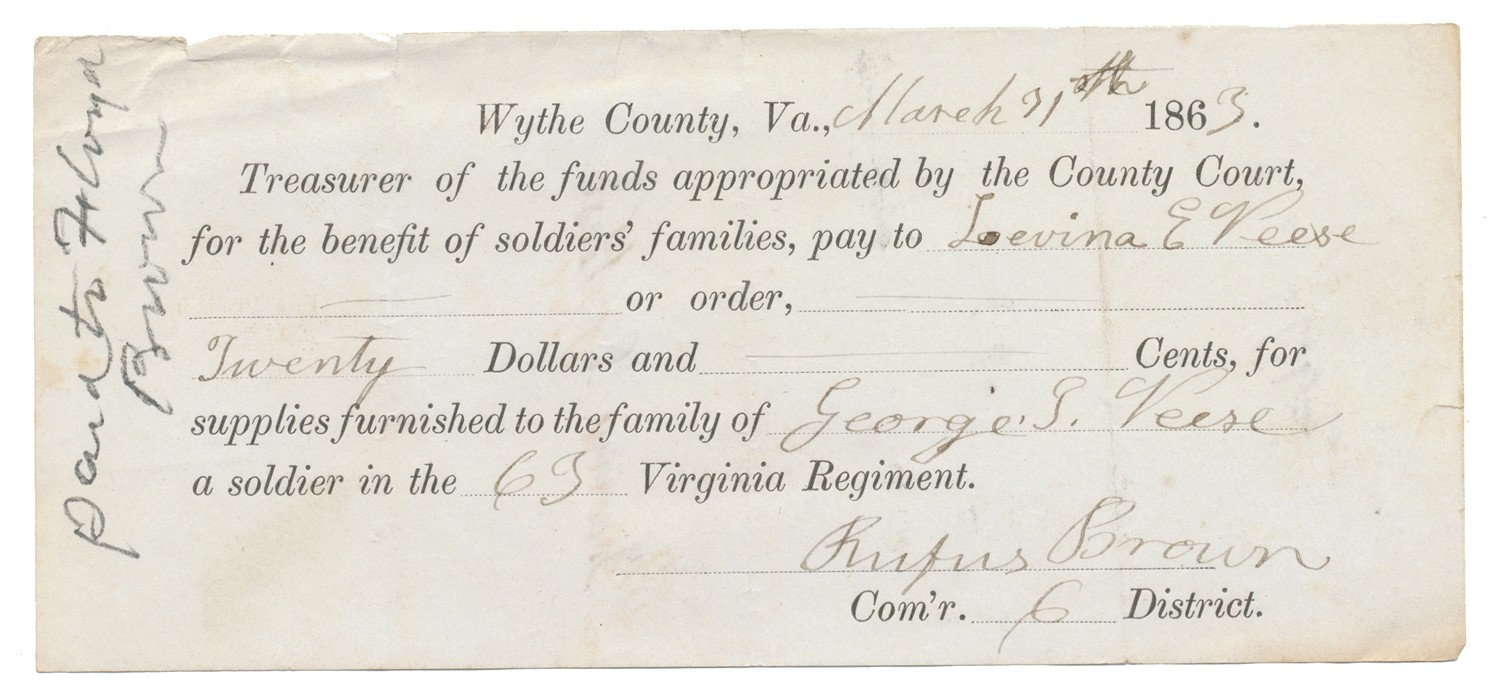 Wythe County, Va., March 31th 1863.
Treasurer of the funds appropriated by the County Court,
for the benefit of soldiers' families, pay to Levina E Veese
or order,
Twenty Dollars and Cents, for
supplies furnished to the family of George S. Veese
a soldier in the 63 Virginia Regiment.
Rufus Brown
Com'r. 6 District.
Paid to
Brown